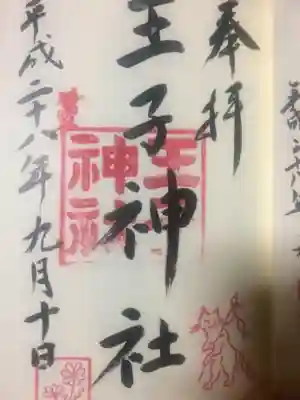 奉拝
王子神社
王子
神社
平成二十八年九月十日